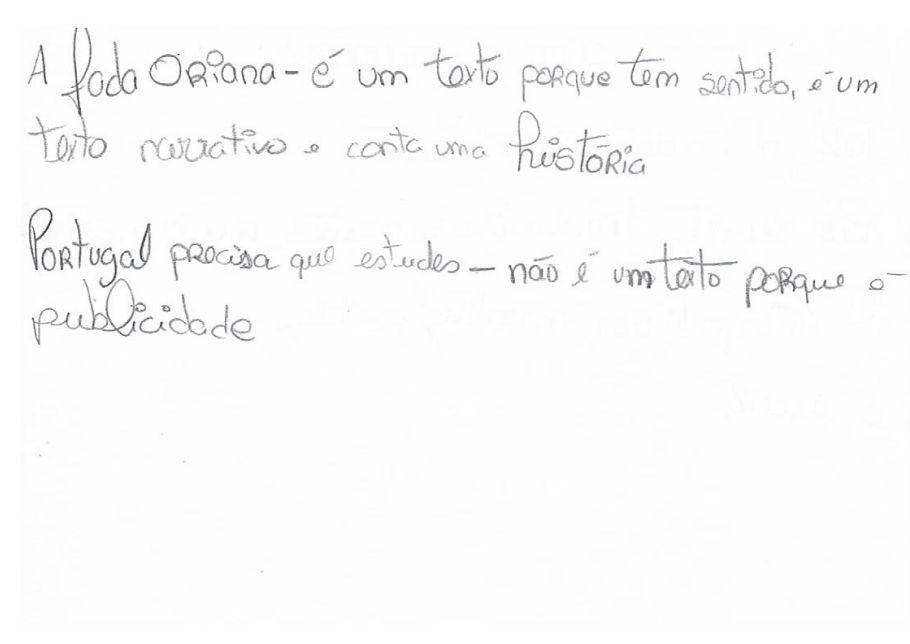 A fada Oriana - é um texto porque tem sentido, é um
texto narrativo e conta uma história
Portugal precisa que estudes - não é um texto porque é
publicidade